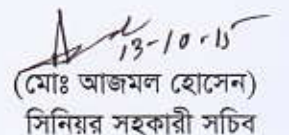 13-10-15
(মোঃ আজমল হোসেন)
সিনিয়র সহকারী সচিব